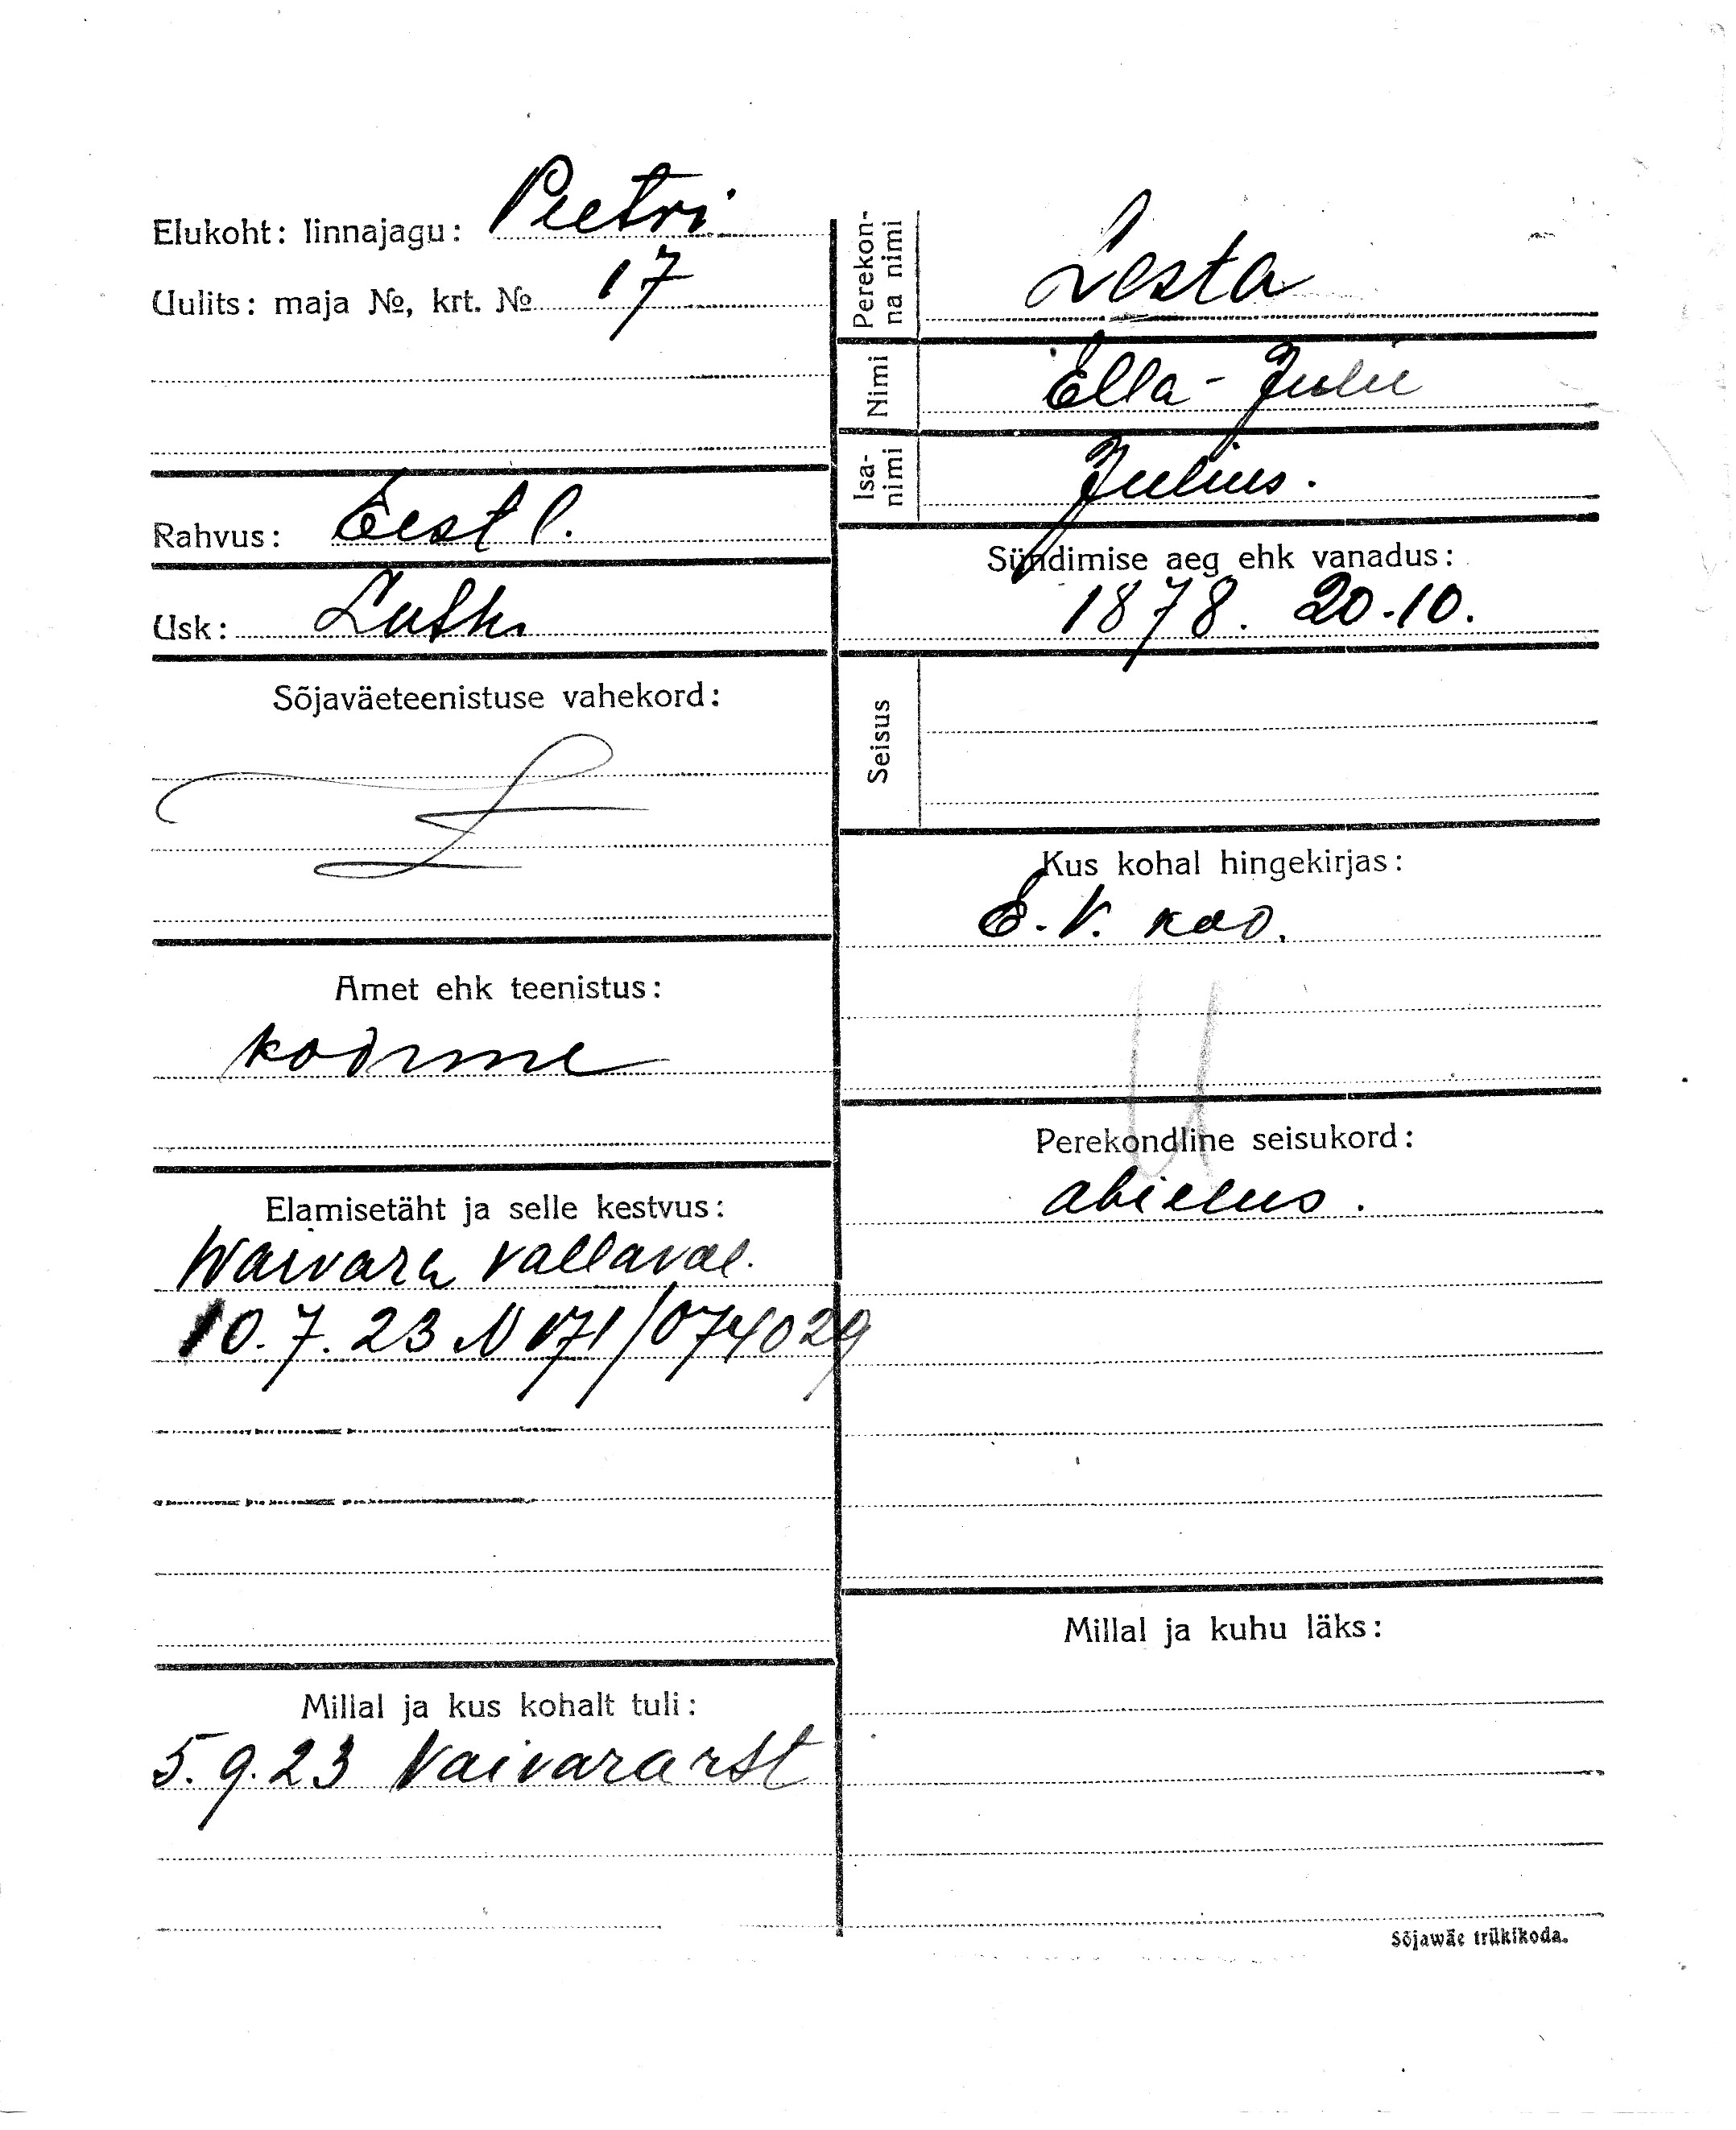 Elukoht: linnajagu: Peetri
Uulits: maja №, krt. № 17
Rahvus: Eestl.
Usk: Luth.
Sõjaväeteenistuse vahekord:
Amet ehk teenistus:
Elamisetäht ja selle kestvus:
Waivara vallaval.
10.7.23 N 171/074029
Millal ja kus kohalt tuli:
5.9.23 Vaivarast
Perekon-
na nimi
Lesta
Nimi
Ella-Julie
Isa-
nimi
Julius.
Sündimise aeg ehk vanadus:
1878. 20.10.
Seisus
Kus kohal hingekirjas:
E.V. kod.
Perekondline seisukord:
abielus.
Millal ja kuhu läks:
Sõjawäe trükikoda.